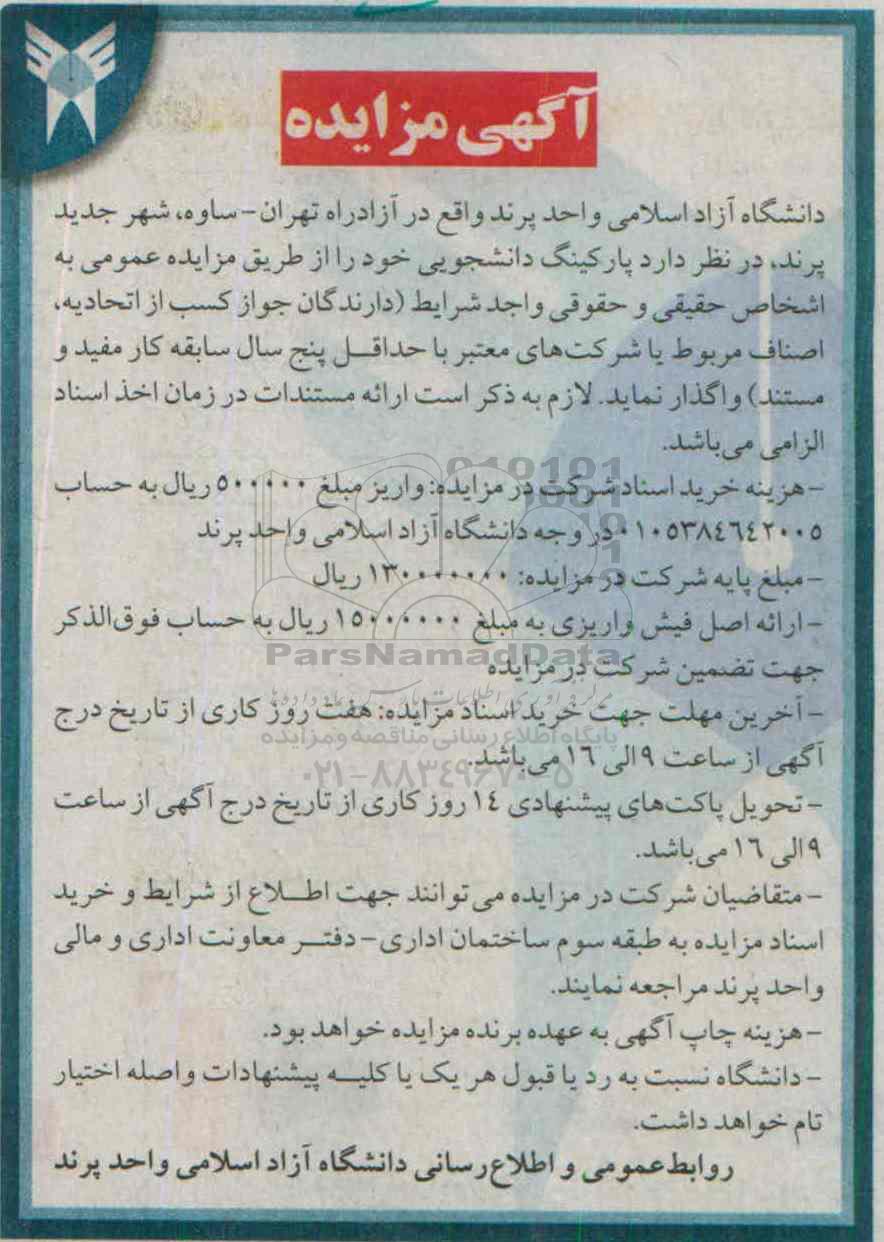 آگهی مزایده
دانشگاه آزاد اسلامی واحد پرند واقع در آزادراه تهران-ساوه، شهر جدید
پرند، در نظر دارد پارکینگ دانشجویی خود را از طریق مزایده عمومی به
اشخاص حقیقی و حقوقی واجد شرایط (دارندگان جواز کسب از اتحادیه،
اصناف مربوط یا شرکت‌های معتبر با حداقل پنج سال سابقه کار مفید و
مستند) واگذار نماید. لازم به ذکر است ارائه مستندات در زمان اخذ اسناد
الزامی می‌باشد.
-هزینه خرید اسناد شرکت در مزایده: واریز مبلغ ۵۰۰۰۰۰ ریال به حساب
۰۱۰۵۳۸۴۶۴۲۰۰۵ در وجه دانشگاه آزاد اسلامی واحد پرند
-مبلغ پایه شرکت در مزایده: ۱۳۰۰۰۰۰۰۰ ریال
-ارائه اصل فیش واریزی به مبلغ ۱۵۰۰۰۰۰۰ ریال به حساب فوق‌الذکر
جهت تضمین شرکت در مزایده
ParsNamadData
-آخرین مهلت جهت خرید اسناد مزایده: هفت روز کاری از تاریخ درج
پایگاه اطلاع رسانی مناقصه و مزایده
آگهی از ساعت ۹ الی ۱۶ می‌باشد.
۰۲۱-۸۸۳۴۹۶۷۰-۵
-تحویل پاکت‌های پیشنهادی ۱۴ روز کاری از تاریخ درج آگهی از ساعت
۹ الی ۱۶ می‌باشد.
-متقاضیان شرکت در مزایده می‌توانند جهت اطلاع از شرایط و خرید
اسناد مزایده به طبقه سوم ساختمان اداری-دفتر معاونت اداری و مالی
واحد پرند مراجعه نمایند.
-هزینه چاپ آگهی به عهده برنده مزایده خواهد بود.
-دانشگاه نسبت به رد یا قبول هر یک یا کلیه پیشنهادات واصله اختیار
تام خواهد داشت.
روابط‌عمومی و اطلاع‌رسانی دانشگاه آزاد اسلامی واحد پرند